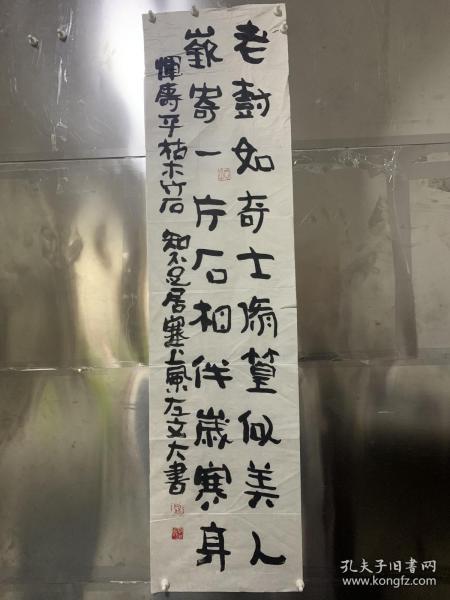 老樹如奇士脩篁似美人
寄一片石相伴歲寒身
惲壽平枯木竹石 知不足居塞上左文大書
孔夫子旧书网
www.kongfz.com